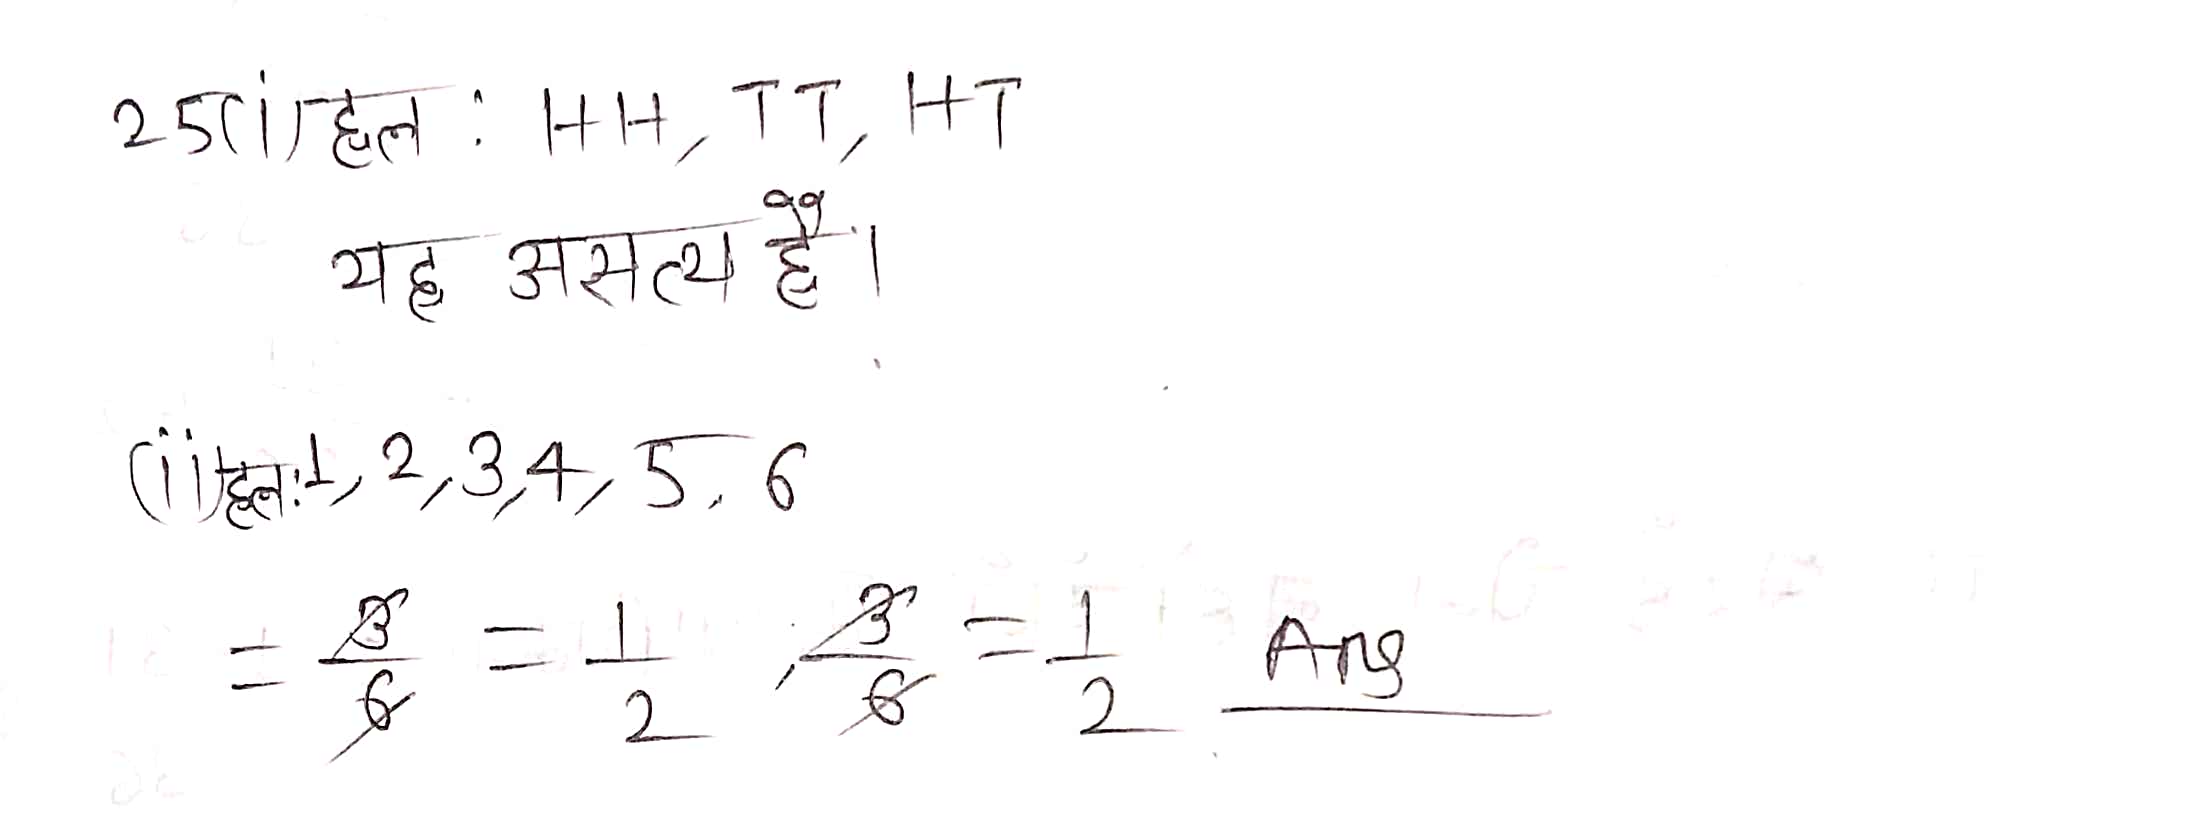 25(i) हल : HH, TT, HT
यह असत्य है।
(ii) हल: 1, 2, 3, 4, 5, 6
= 3/6 = 1/2 , 3/6 = 1/2 Ans